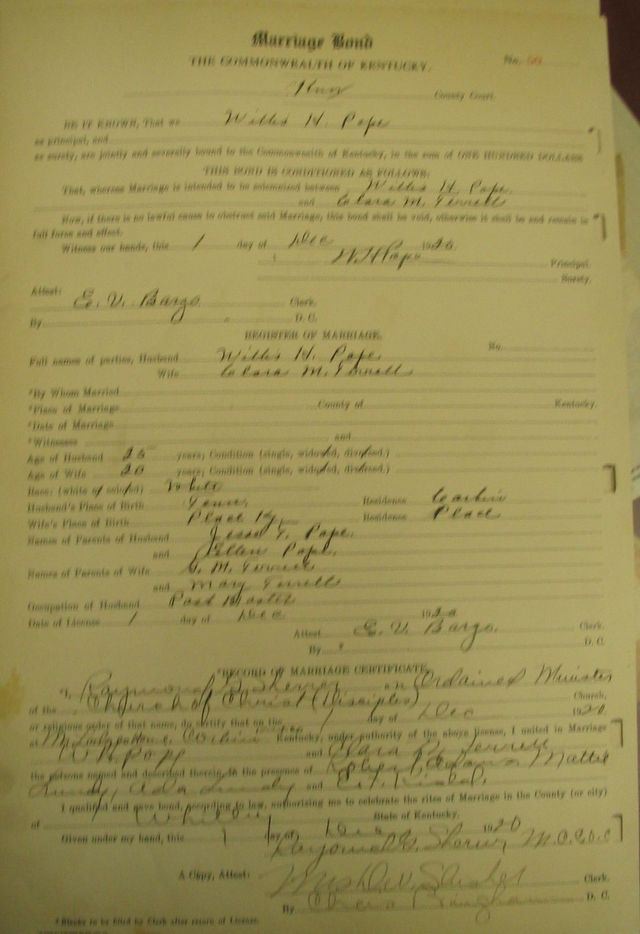 Marriage Bond
THE COMMONWEALTH OF KENTUCKY.
No.
Knox County Court.
BE IT KNOWN, That we Willis H. Pope
as principal, and
as surety, are jointly and severally bound to the Commonwealth of Kentucky, in the sum of ONE HUNDRED DOLLARS
THIS BOND IS CONDITIONED AS FOLLOWS:
That, whereas Marriage is intended to be solemnized between Willis H. Pope
and Clara M. Terrell
Now, if there is no lawful cause to obstruct said Marriage, this bond shall be void, otherwise it shall be and remain in
full force and effect.
Witness our hands, this 1 day of Dec 1920.
W H Pope Principal.
Surety.
Attest:
E. V. Bargo Clerk.
By D. C.
REGISTER OF MARRIAGE.
No.
Full names of parties, Husband Willis H. Pope
Wife Clara M. Terrell
*By Whom Married
*Place of Marriage County of Kentucky.
*Date of Marriage
*Witnesses and
Age of Husband 25 years; Condition (single, widowed, divorced.)
Age of Wife 20 years; Condition (single, widowed, divorced.)
Race: (white or colored) White
Husband's Place of Birth Tenn. Residence Corbin
Wife's Place of Birth Place Ky. Residence Place
Names of Parents of Husband Jesse T. Pope.
and Ellen Pope.
Names of Parents of Wife S. M. Terrell
and Mary Terrell
Occupation of Husband Post Master
Date of License 1 day of Dec 1920
Attest E. V. Bargo. Clerk.
By D. C.
*RECORD OF MARRIAGE CERTIFICATE.
I, Raymond G. Sherrer an Ordained Minister
of the Church of Christ (Disciples) Church,
or religious order of that name, do certify that on the 1 day of Dec 1920,
at Corbin Kentucky, under authority of the above license, I united in Marriage
W H Pope and Clara M. Terrell
the persons named and described therein, in the presence of Adams Mattie
Ada and
I qualified and gave bond, according to law, authorizing me to celebrate the rites of Marriage in the County (or city)
of Whitley State of Kentucky.
Given under my hand, this 1 day of Dec 1920
Raymond G. Sherrer, M.C.O.C
A Copy, Attest: Clerk.
By D. C.
*Blanks to be filled by Clerk after return of License.